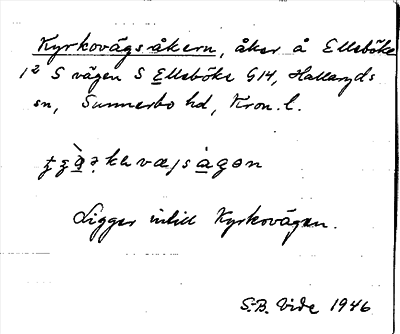 Kyrkovägsåkern, åker å Ellsböke
1² S vägen S Ellsböke G14, Hallaryds
sn, Sunnerbo hd, Kron. l.
Ligger intill Kyrkovägen.
S.-B. Vide 1946